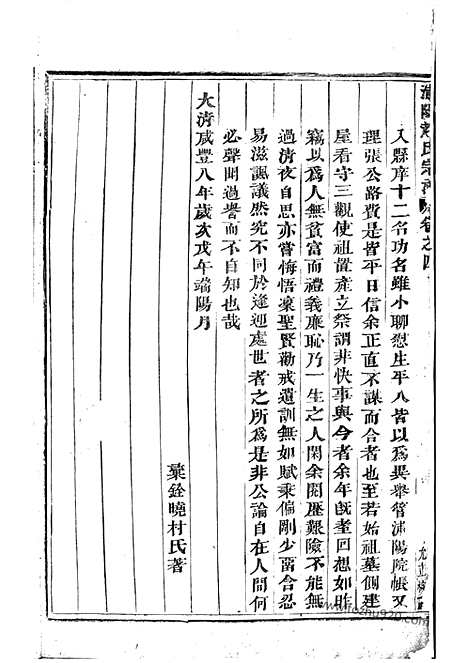 浦陽趙氏宗譜 卷之四
入縣庠十二名功名雖小聊慰生平人皆以爲異舉管浦陽院帳又
理張公路費是皆平日信余正直不謀而合者也至若始祖墓側建
屋看守三觀使祖置產立祭謂非快事與今者余年旣耋回想如昨
竊以爲人無貧富而禮義廉恥乃一生之人閑余閱歷艱險不能無
過清夜自思亦嘗悔悟稟聖賢勸戒遺訓無如賦秉偏剛少含忍
易滋諷議然究不同於逢迎處世者之所爲是非公論自在人間何
必聲聞過譽而不自知也哉
大清咸豐八年歲次戊午端陽月
稟銓曉村氏著
www.fozhu920.com